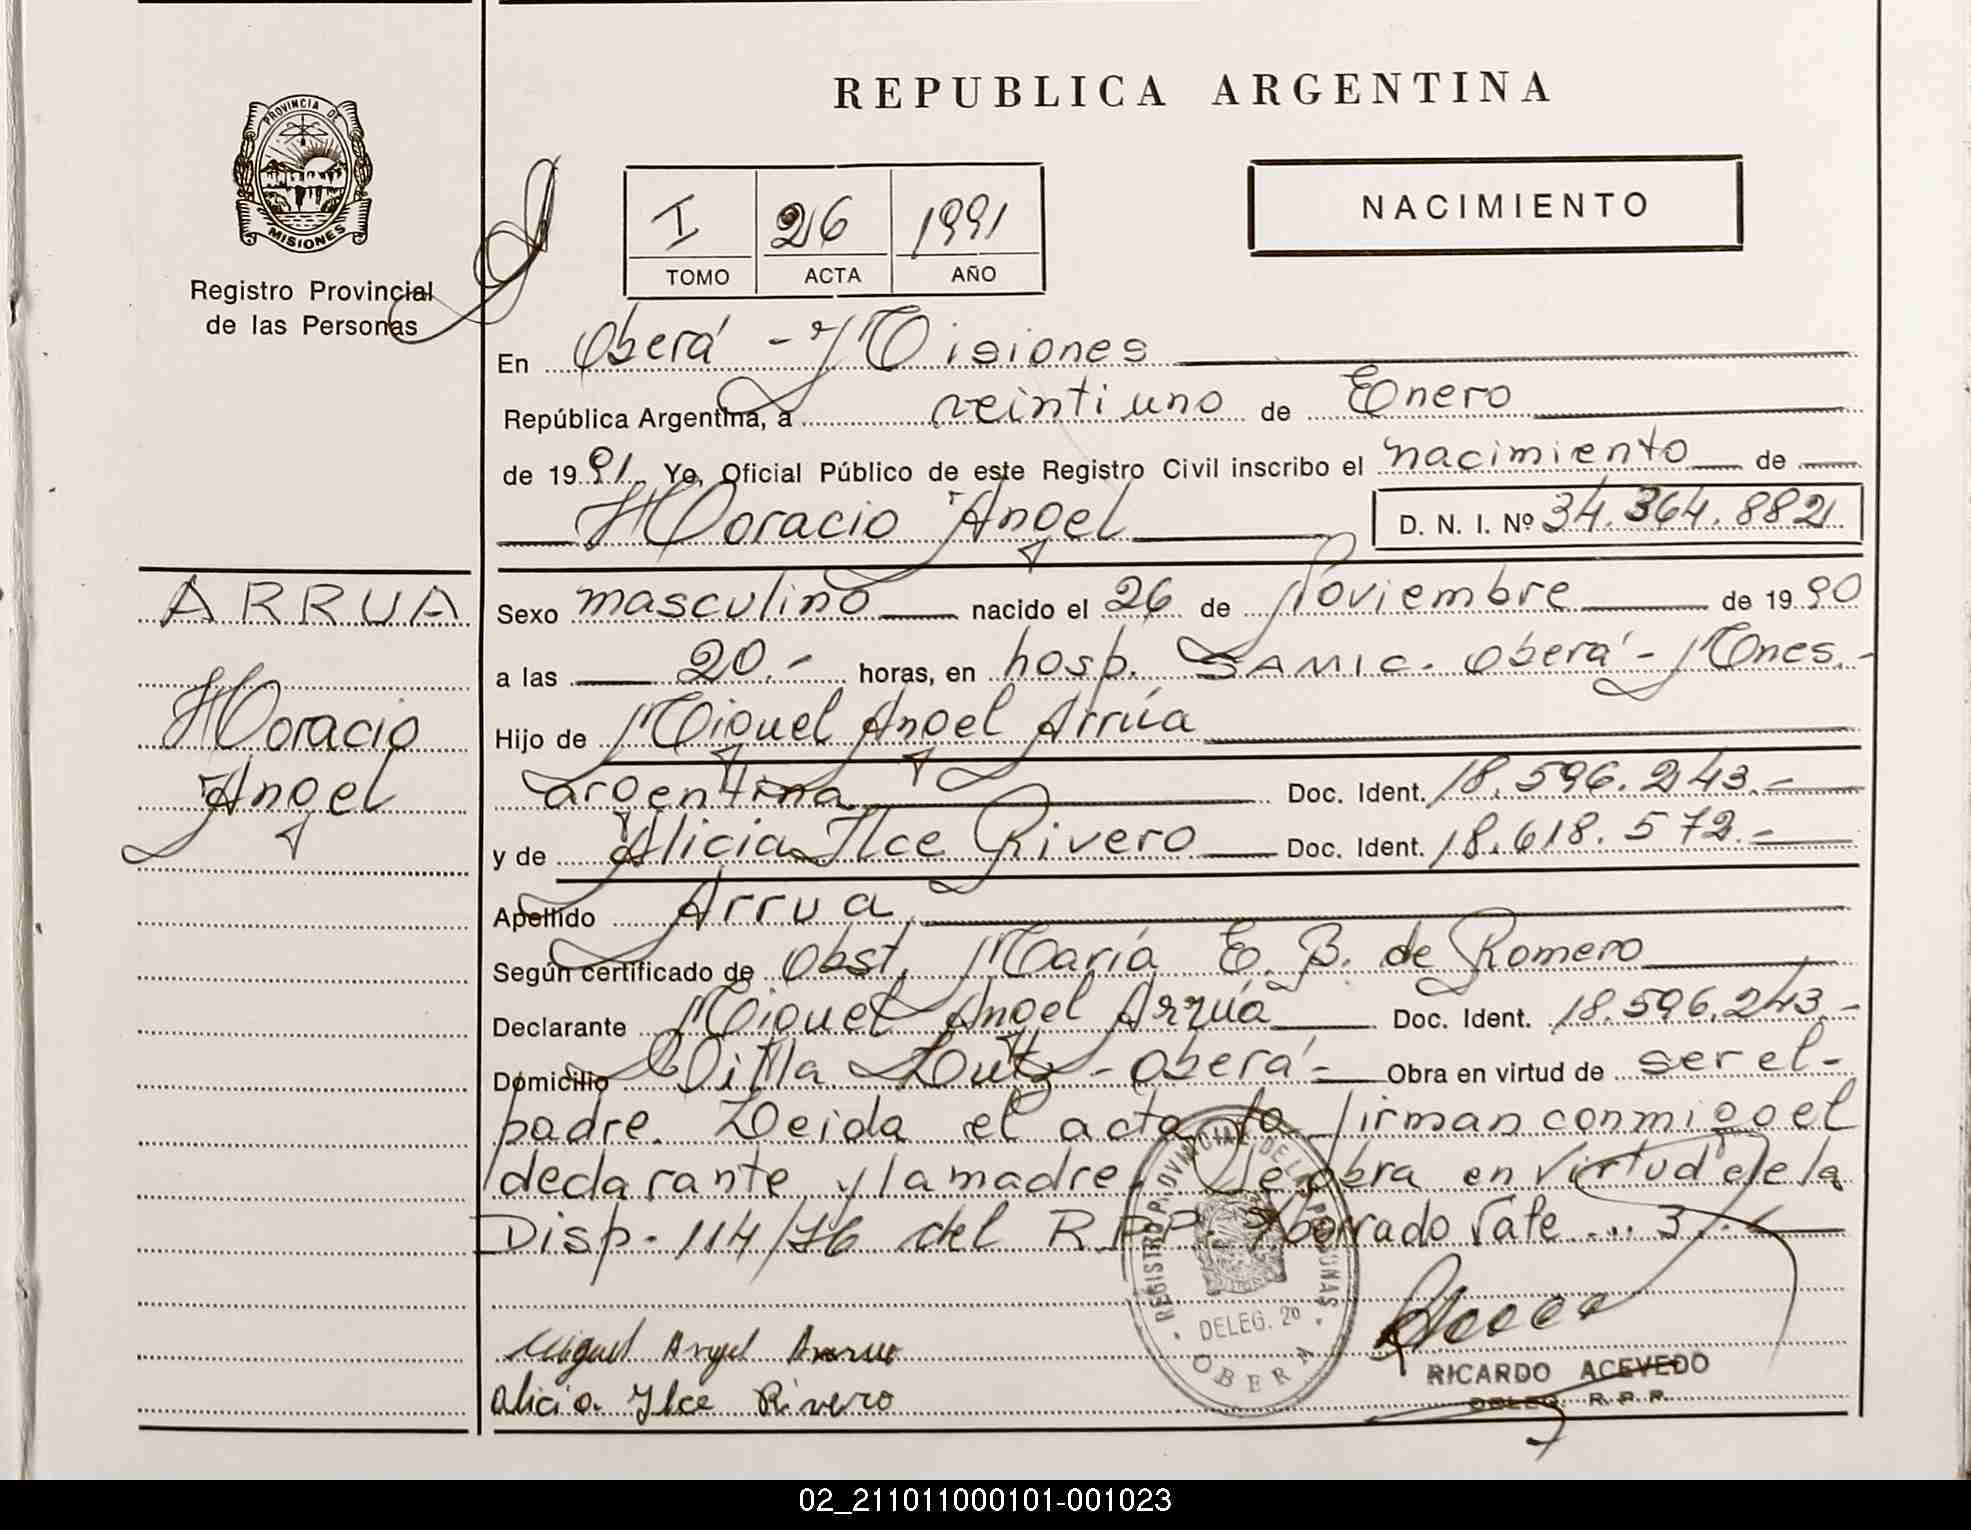 REPUBLICA ARGENTINA
PROVINCIA DE
MISIONES
Registro Provincial
de las Personas
I 26 1991
TOMO ACTA AÑO
NACIMIENTO
En Oberá - Misiones
República Argentina, a veintiuno de Enero
de 1991 Yo, Oficial Público de este Registro Civil inscribo el nacimiento de
Horacio Angel D. N. I. Nº 34.364.882
ARRUA
Horacio
Angel
Sexo masculino nacido el 26 de Noviembre de 1990
a las 20.- horas, en hosp. SAMIC. Oberá - Mnes.-
Hijo de Miguel Angel Arrúa
argentina Doc. Ident. 18.596.243.-
y de Alicia Ilce Rivero Doc. Ident. 18.618.572.-
Apellido Arrua
Según certificado de Obst. María E. B. de Romero
Declarante Miguel Angel Arrúa Doc. Ident. 18.596.243.-
Domicilio Villa Lutz - Oberá - Obra en virtud de ser el-
padre. Leida el acta la firman conmigo el
declarante y la madre. Se obra en virtud de la
Disp. 114/76 del R.P.P. borrado Vale ... 3.
REGISTRO PROVINCIAL DE LAS PERSONAS
DELEG. 20
OBERA
Miguel Angel Arrua
Alicia Ilce Rivero
RICARDO ACEVEDO
DELEG. R.P.P.
02_211011000101-001023